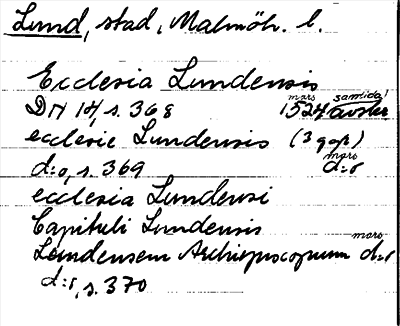 Lund, stad, Malmöh. l.
Ecclesia Lundensis
DN 14, s. 368 mars 1524 samtida avskr
ecclesie Lundensis (3 ggr)
d:o, s. 369 mars d:o
ecclesia Lundensi
Capituli Lundensis
Lundensem Archiepiscopum mars d:o
d:o, s. 370